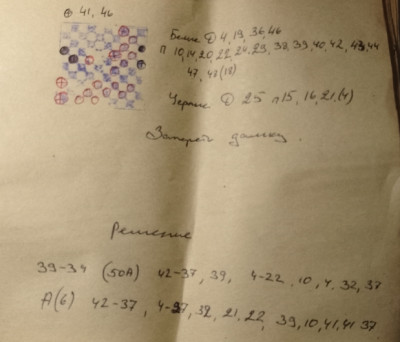 ⊕ 41, 46
Белые Д 4, 19, 36, 46
п 10, 14, 20, 22, 24, 29, 38, 39, 40, 42, 43, 44
47, 48 (18)
Черные Д 25 п 15, 16, 21, (4)
Запереть дамку.
Решение
39-34 (50А) 42-37, 39, 4-22, 10, 4, 32, 37
А(6) 42-37, 4-37, 32, 21, 22, 39, 10, 41, 41 37